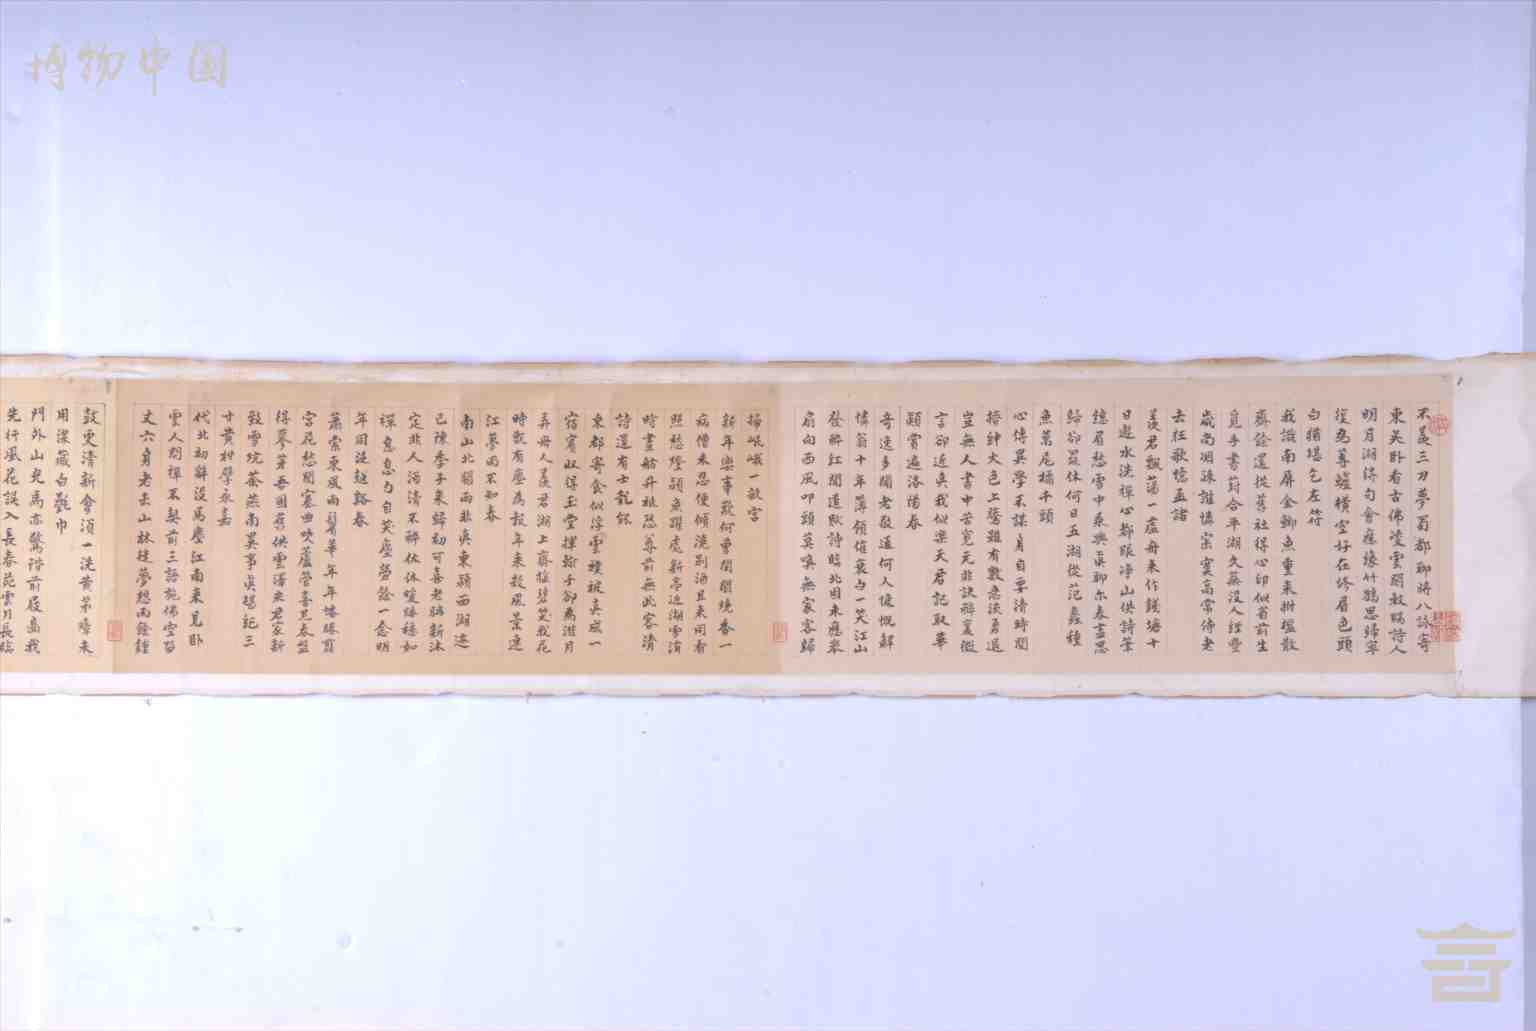 博物中国
不羨三刀夢蜀都聊將八詠寄
東吳卧看古佛凌雲閣敕賜詩人
明月湖得句會應緣竹鶴思歸寧
復為蓴鱸橫空好在修眉色頭
白猶堪乞左符
我識南屏金鯽魚重來拊檻散
齋餘還從舊社得心印似省前生
覓手書葑合平湖久蕪没人經豐
歲尚凋疎誰憐寂寞高常侍老
去狂歌憶孟諸
羨君飄蕩一虛舟来作錢塘十
日遊水洗禪心都眼净山供詩筆
總眉愁雪中乘興真聊尔春盡思
歸卻罷休何日五湖從范蠡種
魚萬尾橘千頭
心傳異學不謀身自要清時閱
搢紳火色上騰雖有數急流勇退
豈無人書中苦覓元非訣醉裏微
言卻近真我似樂天君記取華
顛賞遍洛陽春
奇逢多闕老敬通何人慷慨解
憐翁十年簿領催衰白一笑江山
發醉紅聞道賦詩臨北固未應舉
扇向西風叩頭莫喚無家客歸
掃岷峨一畝宮
新年樂事歎何曾閉閤燒香一
病僧未忍便傾澆别酒且来同看
照愁燈潁魚躍處新亭近湖雪消
時畫舫升秪恐尊前無此客清
詩還有士龍能
東都寄食似浮雲襆被真成一
宿賓収得玉堂揮翰手卻為淮月
弄舟人羨君湖上齋摇碧笑我花
時甑有塵為報年来殺風景連
江夢雨不知春
南山北闕兩非真東潁西湖迹
已陳季子来歸初可喜老聃新沐
定非人酒清不醉休休暖睡穩如
禪息息勻自笑塵勞餘一念明
年同泛越谿春
蕭索東風兩鬢華年年幡勝剪
宮花愁聞塞曲吹蘆管喜見春盤
得蓼芽吾國舊供雲澤米君家新
致雪坑茶燕南異事真堪紀三
寸黄柑擘永嘉
代北初辭没馬塵江南来見卧
雲人問禪不契前三語施佛空留
丈六身老去山林徒夢想雨餘鍾
鼓更清新會須一洗黄茅瘴未
用深藏白氎巾
門外山光馬亦驚階前屐齒我
先行風花誤入長春苑雲月長臨